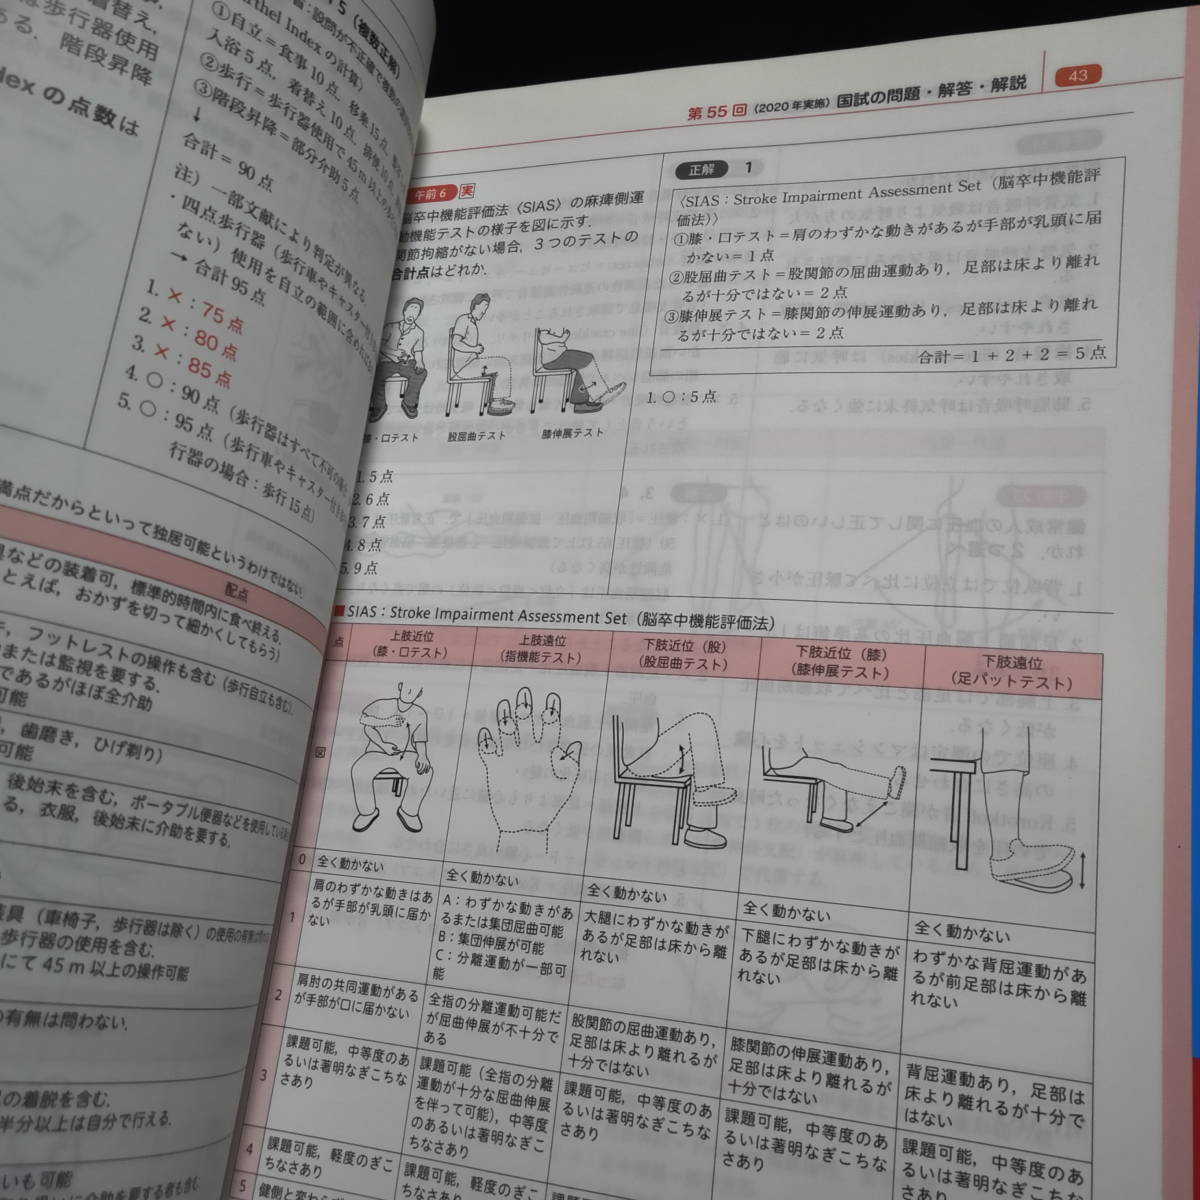 着替え，
は歩行器使用
ある．階段昇降
dex の点数は
5（複数正解）
：設問が不正確で複数の
rthel Index の計算〉
①自立＝食事 10 点，移乗 15 点，
入浴 5 点，着替え 10 点，排便 10 点，
②歩行＝歩行器使用で 45 m 以上の歩
③階段昇降＝部分介助 5 点
↓
合計＝ 90 点
注）一部文献により判定が異なる．
・四点歩行器（歩行車やキャスター付き
ない）使用を自立の範囲に含めれば
→ 合計 95 点
1. ×：75 点
2. ×：80 点
3. ×：85 点
4. ○：90 点（歩行器はすべて不可の場合
5. ○：95 点（歩行車やキャスター付き
行器の場合：歩行 15 点）
満点だからといって独居可能というわけではない．
配点
具などの装着可，標準的時間内に食べ終える．
とえば，おかずを切って細かくしてもらう）
，フットレストの操作も含む（歩行自立も含む）．
または監視を要する．
であるがほぼ全介助
可能
，歯磨き，ひげ剃り）
可能
後始末を含む，ポータブル便器などを使用している
る，衣服，後始末に介助を要する．
装具（車椅子，歩行器は除く）の使用の有無は
歩行器の使用を含む．
にて 45 m 以上の操作可能
の有無は問わない．
の着脱を含む．
半分以上は自分で行える．
いも可能
第 55 回（2020 年実施）国試の問題・解答・解説
43
午前 6 実
脳卒中機能評価法〈SIAS〉の麻痺側運
動機能テストの様子を図に示す．
関節拘縮がない場合，3 つのテストの
合計点はどれか．
膝・口テスト
股屈曲テスト
膝伸展テスト
1. 5 点
2. 6 点
3. 7 点
4. 8 点
5. 9 点
正解 1
〈SIAS：Stroke Impairment Assessment Set（脳卒中機能評
価法）〉
①膝・口テスト＝肩のわずかな動きがあるが手部が乳頭に届
かない＝ 1 点
②股屈曲テスト＝股関節の屈曲運動あり，足部は床より離れ
るが十分ではない＝ 2 点
③膝伸展テスト＝膝関節の伸展運動あり，足部は床より離れ
るが十分ではない＝ 2 点
合計＝ 1 ＋ 2 ＋ 2 ＝ 5 点
1. ○：5 点
■ SIAS：Stroke Impairment Assessment Set（脳卒中機能評価法）
点
上肢近位
（膝・口テスト）
上肢遠位
（指機能テスト）
下肢近位（股）
（股屈曲テスト）
下肢近位（膝）
（膝伸展テスト）
下肢遠位
（足パットテスト）
図
0
全く動かない
全く動かない
全く動かない
全く動かない
全く動かない
1
肩のわずかな動きはあ
るが手部が乳頭に届か
ない
A：わずかな動きがあ
るまたは集団屈曲可能
B：集団伸展が可能
C：分離運動が一部可
能
大腿にわずかな動きが
あるが足部は床から離
れない
下腿にわずかな動きが
あるが足部は床から離
れない
わずかな背屈運動があ
るが前足部は床から離
れない
2
肩肘の共同運動がある
が手部が口に届かない
全指の分離運動可能だ
が屈曲伸展が不十分で
ある
股関節の屈曲運動あり，
足部は床より離れるが
十分ではない
膝関節の伸展運動あり，
足部は床より離れるが
十分ではない
背屈運動あり，足部は
床より離れるが十分で
はない
3
課題可能，中等度のあ
るいは著明なぎこちな
さあり
課題可能（全指の分離
運動が十分な屈曲伸展
を伴って可能），中等度
のあるいは著明なぎこ
ちなさあり
課題可能，中等度のあ
るいは著明なぎこちな
さあり
課題可能，中等度のあ
るいは著明なぎこちな
さあり
課題可能，中等度のあ
るいは著明なぎこちな
4
課題可能，軽度のぎこ
ちなさあり
課題可能，軽度のぎこ
5
健側と変わらず